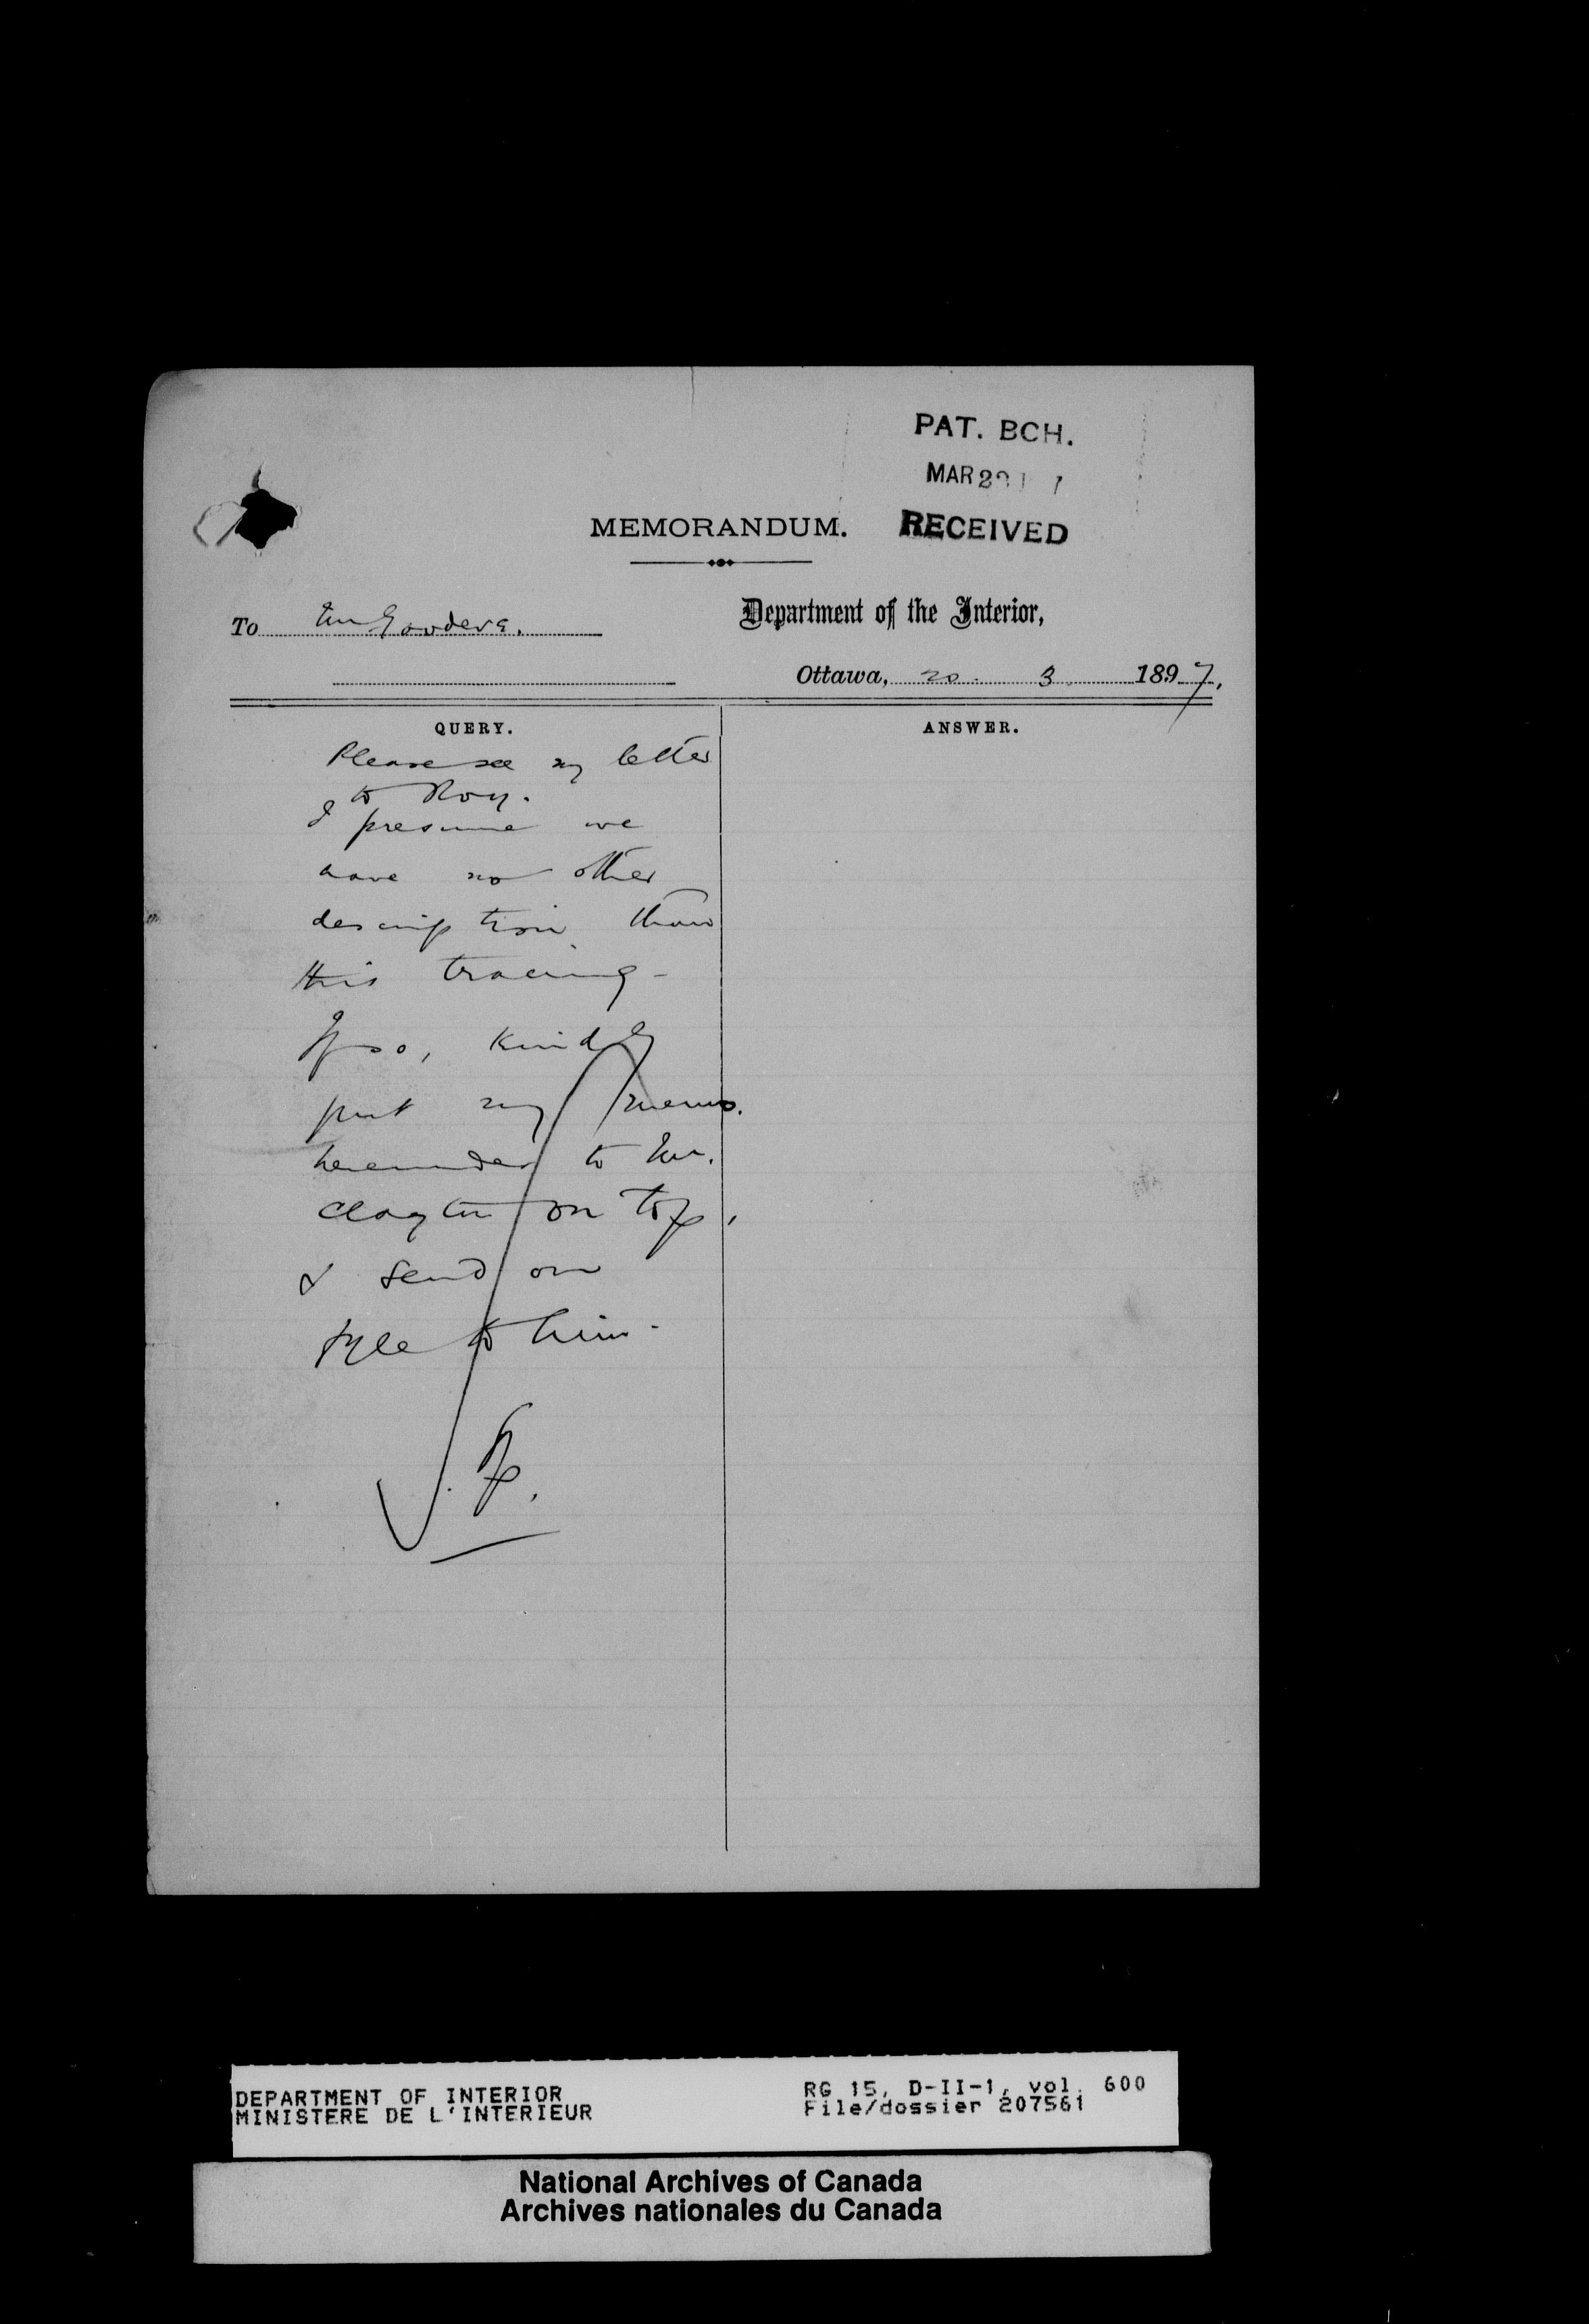 PAT. BCH.
MAR 2
RECEIVED
MEMORANDUM.
To Mr Goodeve.
Department of the Interior,
Ottawa, 20. 3. 1897,
QUERY.
ANSWER.
Please see my letter
to Roy.
I presume we
have no other
description than
this tracing -
If so, kindly
put my memo.
hereunder to Mr.
Clayton on top,
& send on
file to him.
DEPARTMENT OF INTERIOR
MINISTERE DE L'INTERIEUR
RG 15, D-II-1, vol. 600
File/dossier 207561
National Archives of Canada
Archives nationales du Canada